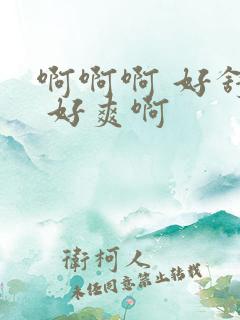 啊啊啊 好舒
好爽啊
衛柯人
未经同意禁止转载